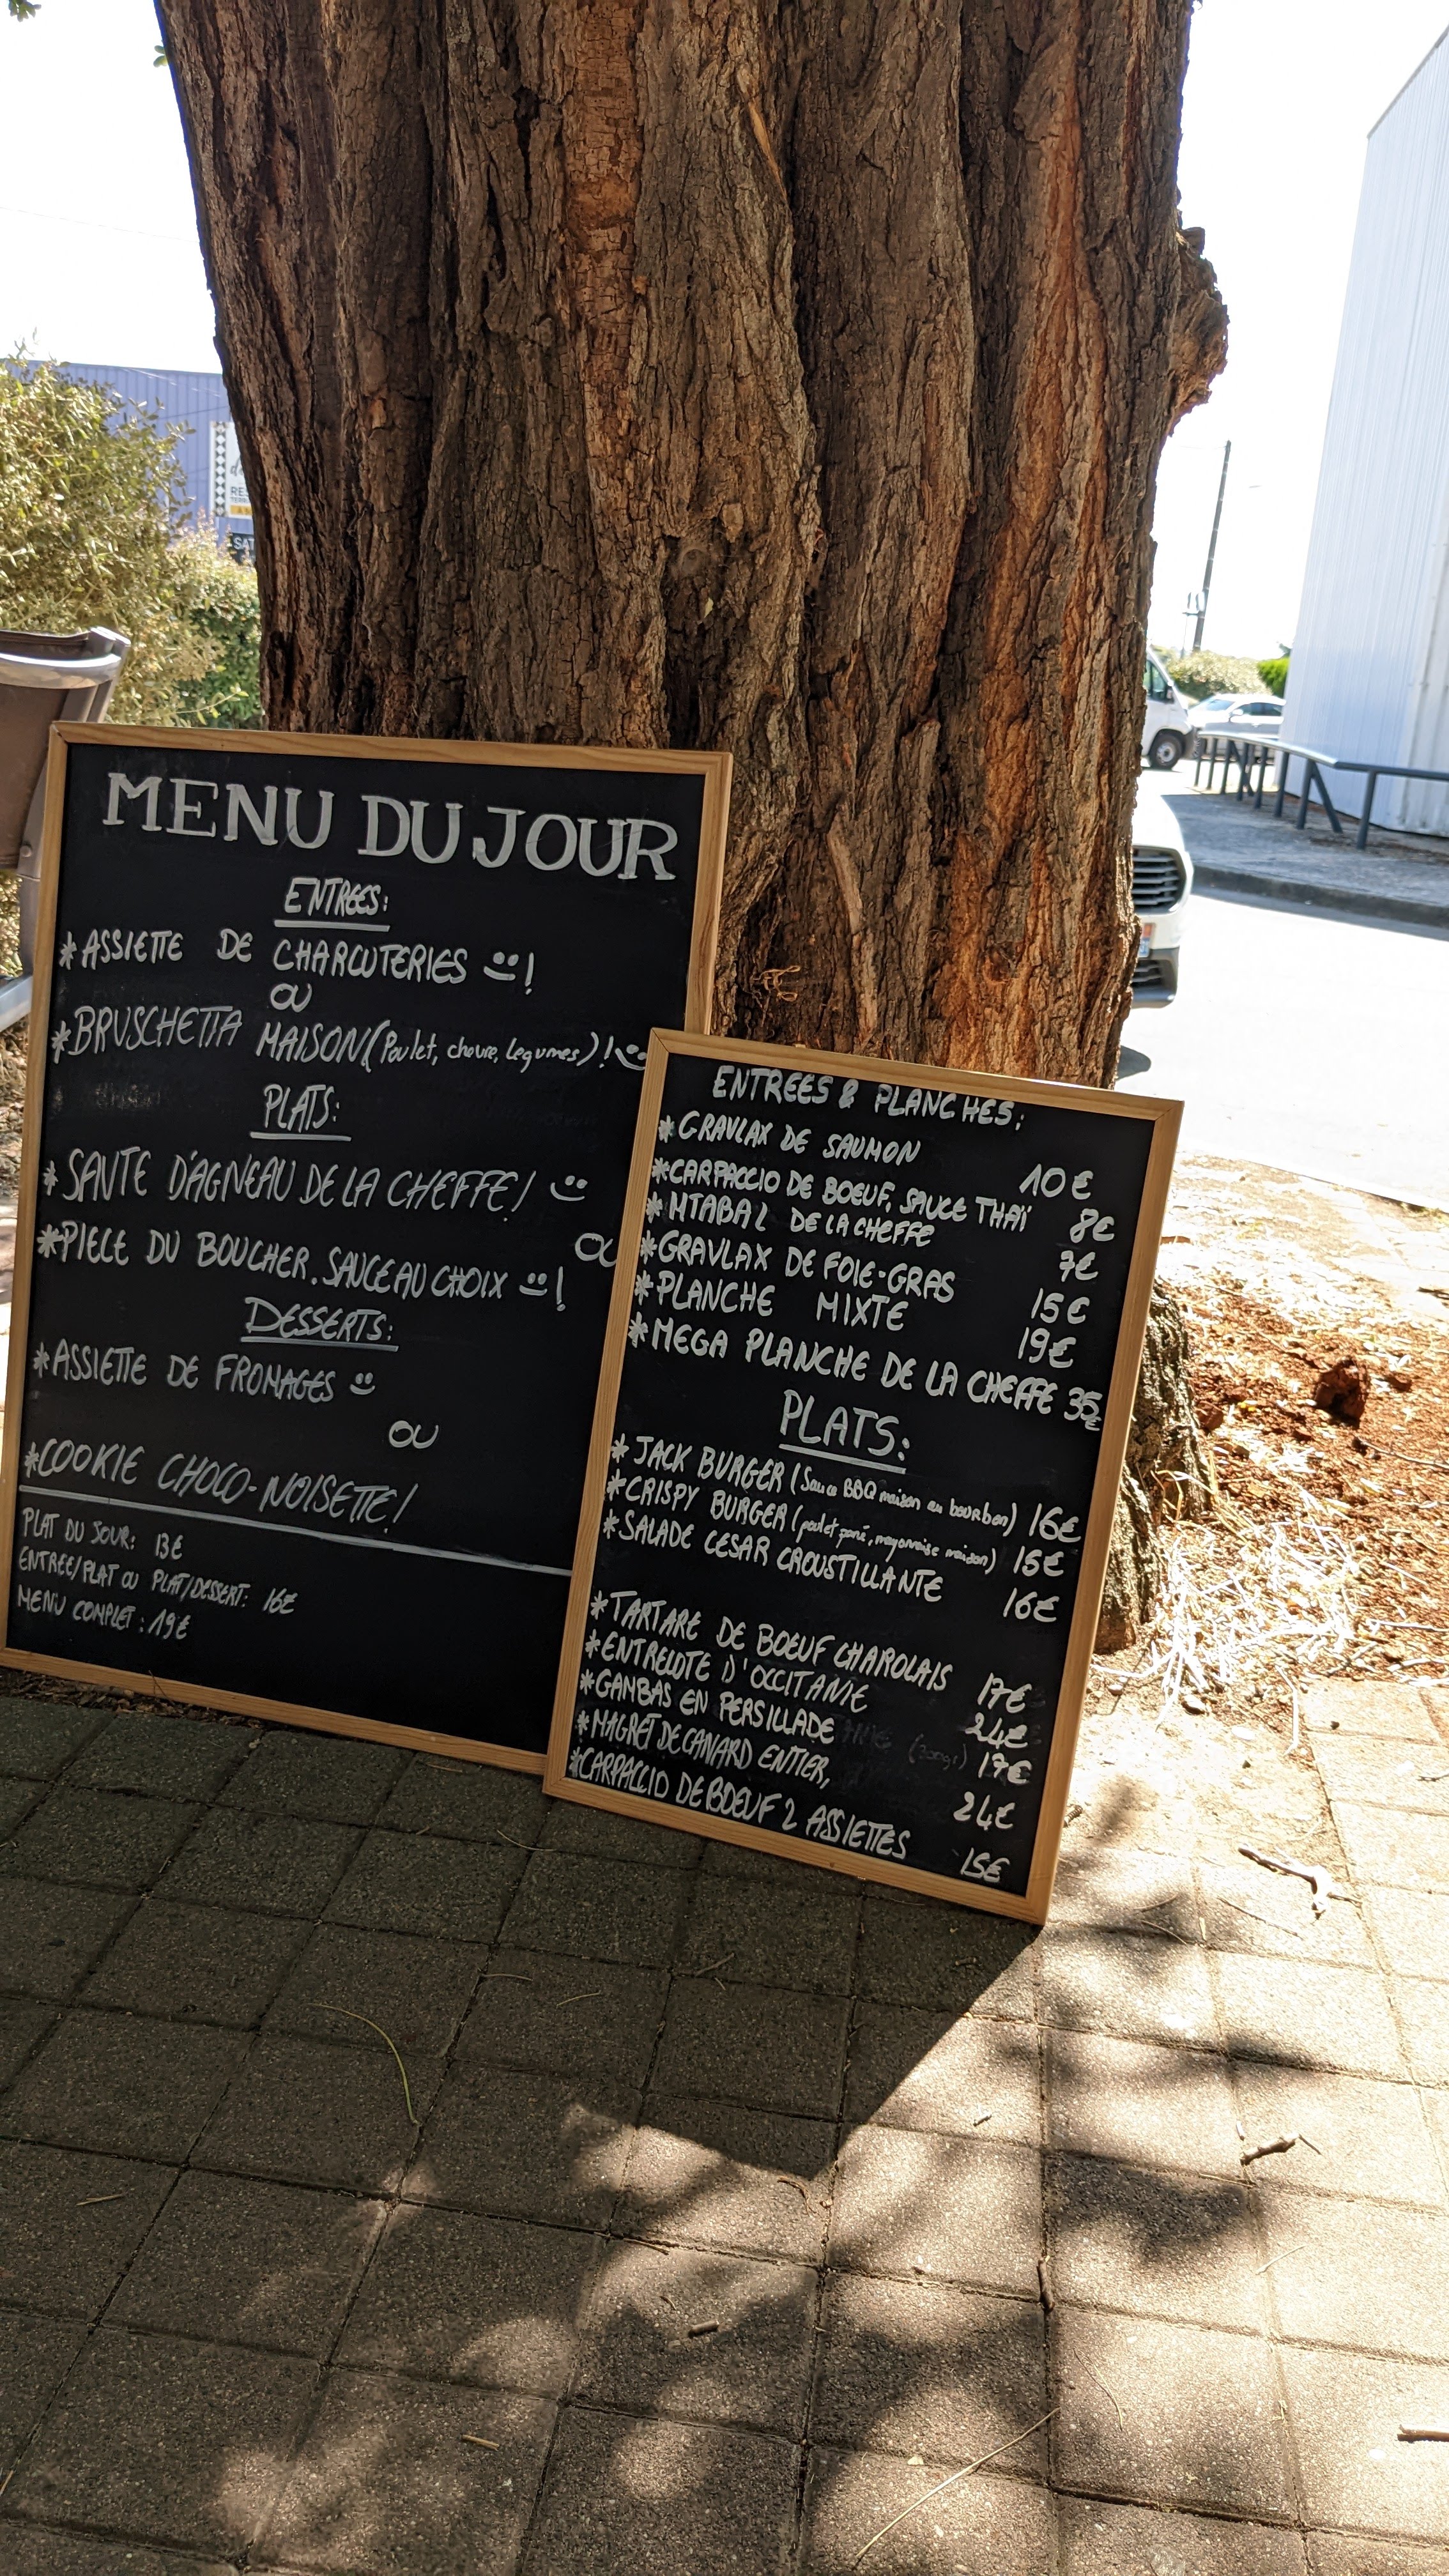 MENU DU JOUR
ENTREES:
*ASSIETTE DE CHARCUTERIES !
OU
*BRUSCHETTA MAISON (Poulet, chevre, legumes) !
PLATS:
*SAUTE D'AGNEAU DE LA CHEFFE!
OU
*PIECE DU BOUCHER. SAUCE AU CHOIX !
DESSERTS:
*ASSIETTE DE FROMAGES
OU
*COOKIE CHOCO-NOISETTE!
PLAT DU JOUR: 13€
ENTREE/PLAT OU PLAT/DESSERT: 16€
MENU COMPLET: 19€
ENTREES & PLANCHES:
*GRAVLAX DE SAUMON 10€
*CARPACCIO DE BOEUF, SAUCE THAÏ 8€
*MTABAL DE LA CHEFFE 7€
*GRAVLAX DE FOIE-GRAS 15€
*PLANCHE MIXTE 19€
*MEGA PLANCHE DE LA CHEFFE 35€
PLATS:
*JACK BURGER (Sauce BBQ maison au bourbon) 16€
*CRISPY BURGER (poulet pané, mayonnaise maison) 15€
*SALADE CESAR CROUSTILLANTE 16€
*TARTARE DE BOEUF CHAROLAIS 17€
*ENTRECOTE D'OCCITANIE 24€
*GAMBAS EN PERSILLADE 17€
*MAGRET DE CANARD ENTIER, 24€
*CARPACCIO DE BOEUF 2 ASSIETTES 15€